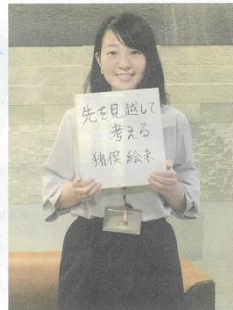 先を見越して
考える
猪俣 絵未